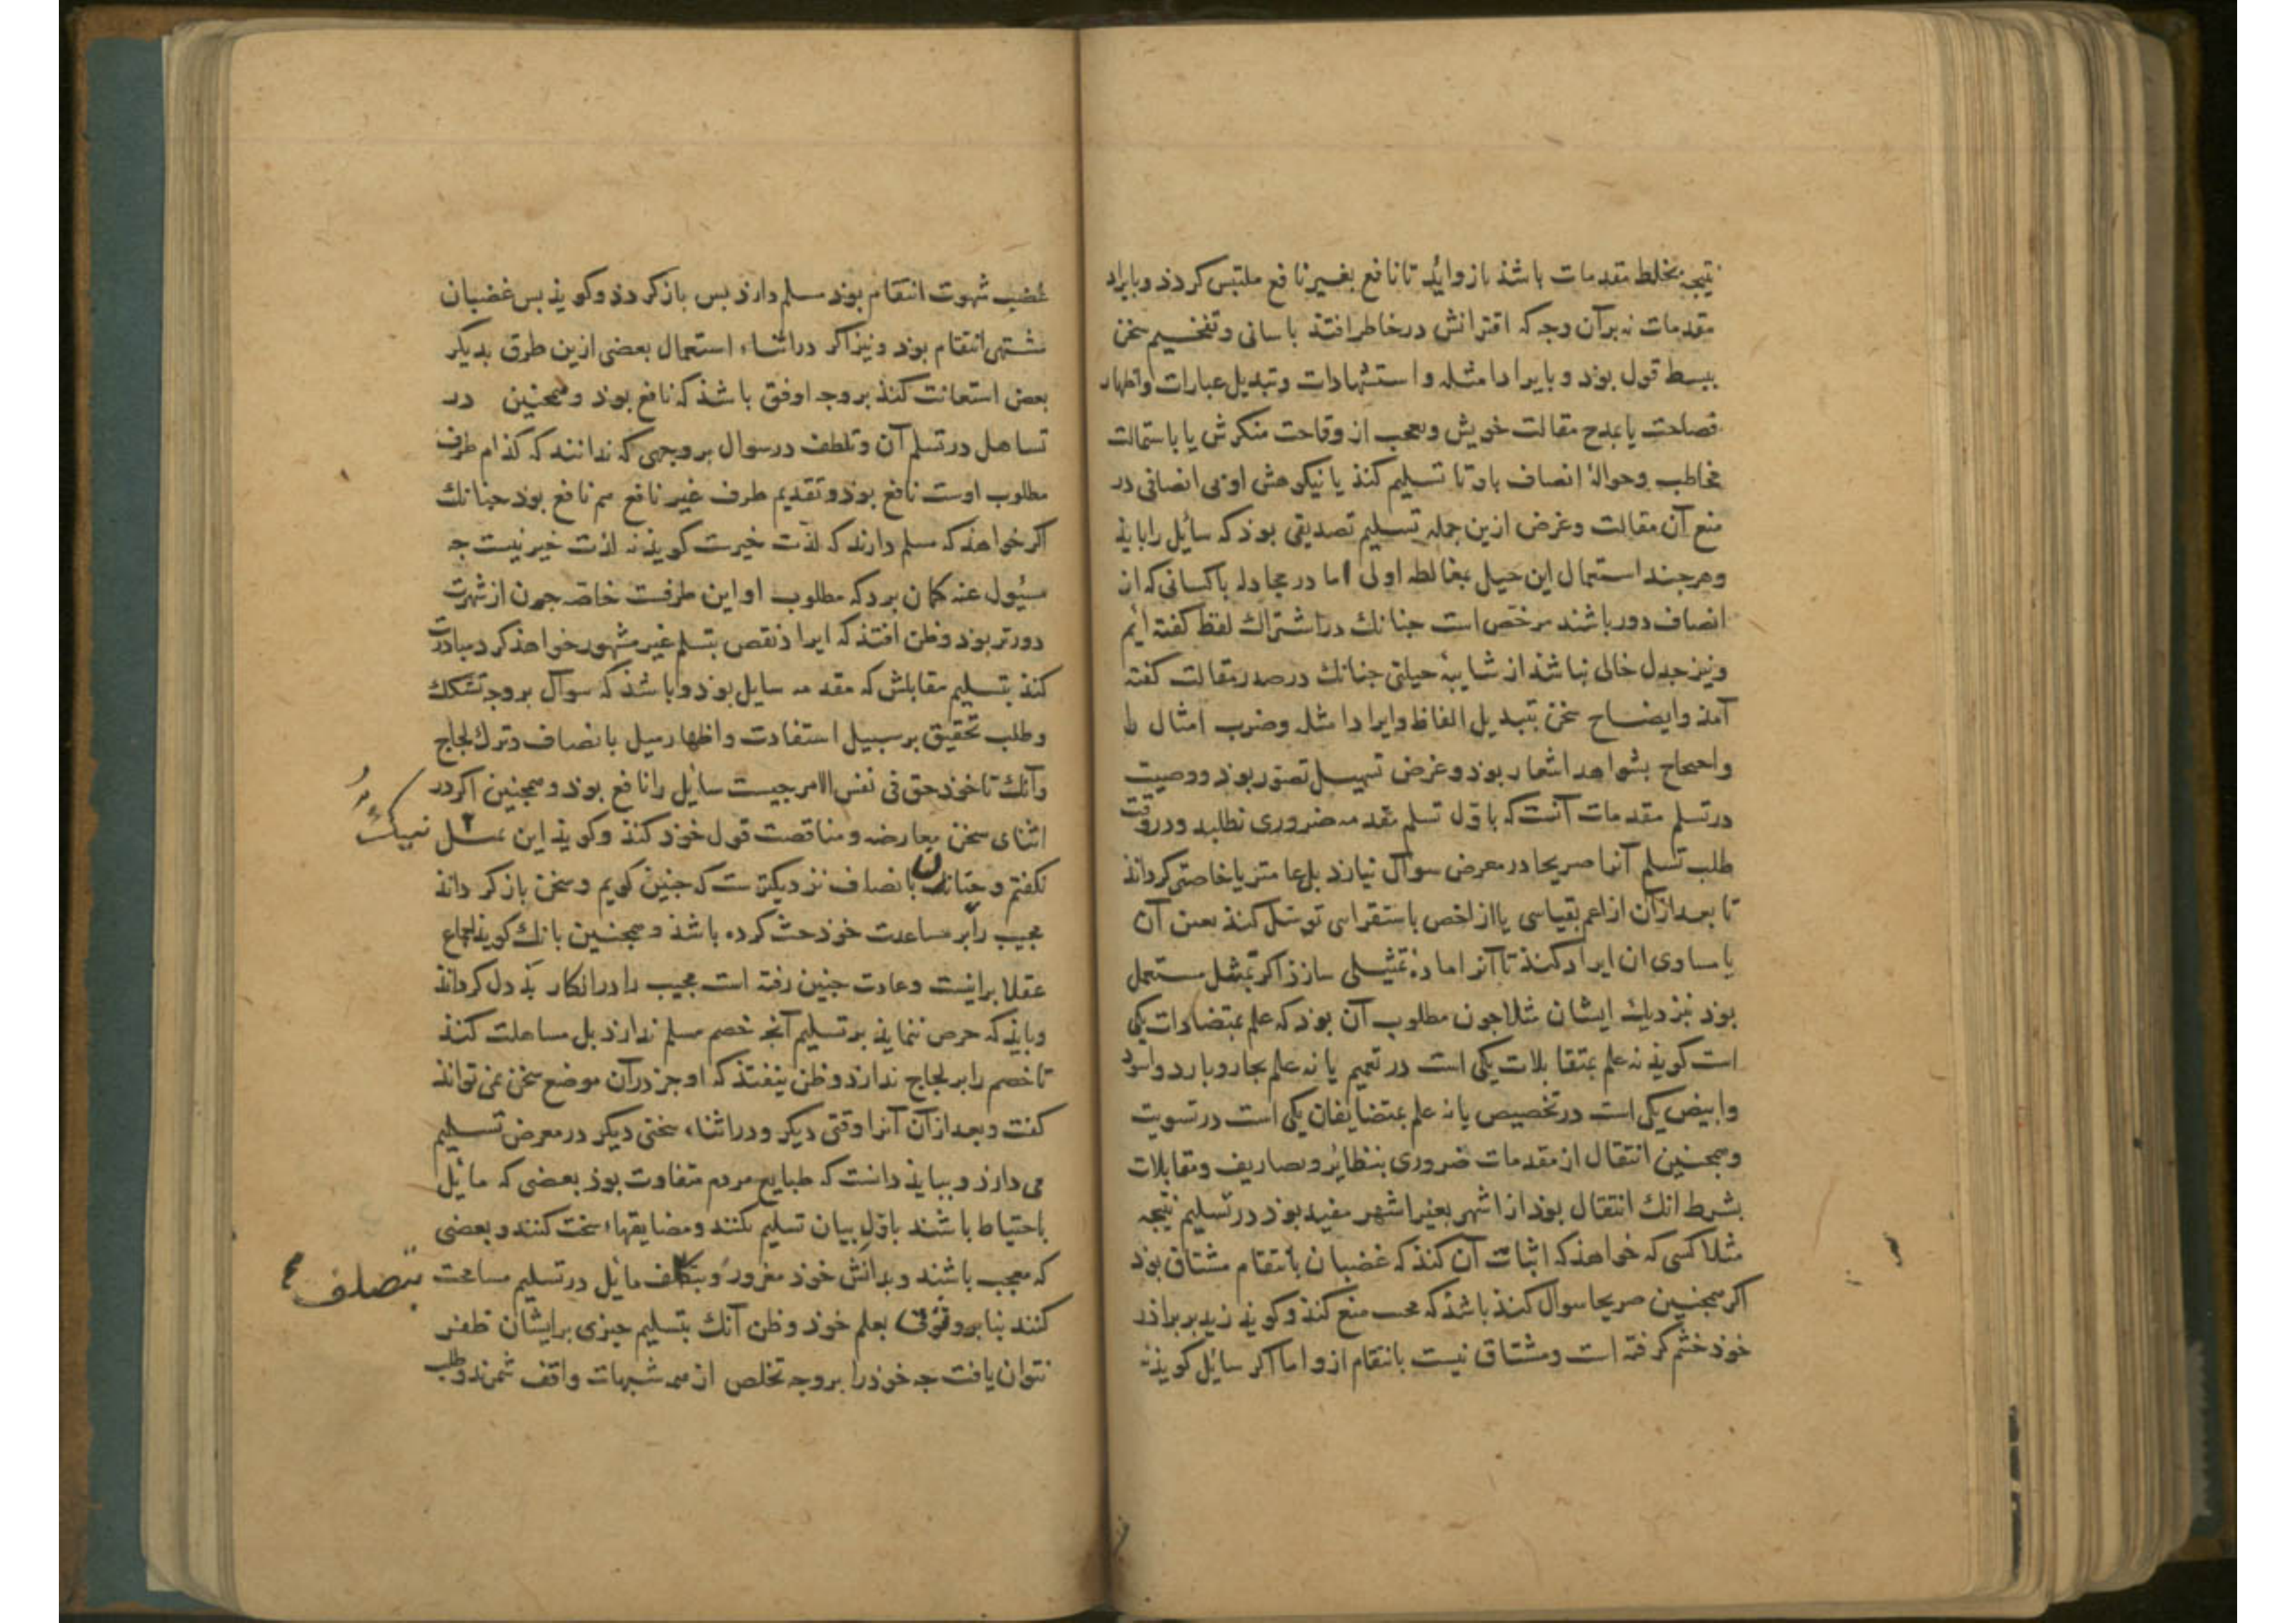 نتیجه بخلط مقدمات باشذ بازوائد تا نافع بغیر نافع ملتبس کردذ و بایراد
مقدمات نه بر آن وجه که اقترانش در خاطر افتذ باسانی و تفخیم سخن
ببسط قول بوذ و بایراد امثله و استشهادات و تبدیل عبارات و اظهار
فصاحت یا بمدح مقالت خویش و تعجب از وقاحت منکرش یا باستمالت
مخاطب و حوالهٔ انصاف باو تا تسلیم کنذ یا نیکوهش او بی انصافی در
منع آن مقالت و غرض ازین جمله تسلیم تصدیقی بوذ که سائل را بایذ
و هرجند استعمال این حیل بمغالطه اولی اما در مجادله با کسانی که از
انصاف دور باشند مرخص است جنانک در اشتراک لفظ کفته ائیم
و نیز جدل خالی نباشذ از شایبهٔ حیلتی جنانک در صدر مقالت کفته
آمذ و ایضاح سخن بتبدیل الفاظ و ایراد امثله و ضرب امثال
و احتجاج بشواهد اشعار بوذ و غرض تسهیل تصور بوذ و وصیت
در تسلم مقدمات آنست که باول تسلم مقدمه ضروری نطلبد و در وقت
طلب تسلم آنرا صریحا در معرض سوال نیارذ بل عامتر یا خاصتر کرداند
تا بعد از آن از اعم بقیاسی یا از اخص باستقراسی توسل کنذ بعین آن
یا مساوی ان ایراد کنذ تا آنرا ماده تمثیلی سازذ اکر تمثیل مستعمل
بوذ نزدیک ایشان مثلا جون مطلوب آن بوذ که علم بمتضادات یکی
است کویذ نه علم بمتقابلات یکی است در تعمیم یا نه علم بحار و بارد و اسود
و ابیض یکی است در تخصیص یا نه علم بمتضایفان یکی است در تسویت
و همجنین انتقال از مقدمات ضروری بنظائر و تصاریف و مقابلات
بشرط انک انتقال بوذ از اشهر بغیر اشهر مفید بوذ در تسلیم نتیجه
مثلا کسی که خواهذ که اثبات آن کنذ که غضبان بانتقام مشتاق بوذ
اکر همجنین صریحا سوال کنذ باشذ که مجیب منع کنذ و کویذ زید بر براذر
خوذ خشم کرفته است و مشتاق نیست بانتقام ازو اما اکر سائل کویذ نه
غضب شهوت انتقام بوذ مسلم دارذ بس باز کردذ و کویذ بس غضبان
مشتهی انتقام بوذ و نیز اکر در اثناء استعمال بعضی ازین طرق بدیکر
بعض استعانت کنذ بر وجه اوفق باشذ که نافع بوذ و همجنین در
تساهل در تسلم آن و تلطف در سوال بر وجهی که ندانند که کذام طرف
مطلوب اوست نافع بوذ و تقدیم طرف غیر نافع هم نافع بوذ جنانک
اکر خواهذ که مسلم دارند که لذت خیرست کویذ نه لذت خیر نیست جه
مسئول عنه کمان برد که مطلوب او این طرفست خاصه جون از شهرت
دورتر بوذ و ظن افتذ که ایراذ نقص بتسلم غیر مشهور خواهذ کرد مبادرت
کنذ بتسلیم مقابلش که مقدمه سایل بوذ و باشذ که سوال بر وجه تشکک
و طلب تحقیق بر سبیل استفادت و اظهار میل بانصاف و ترک لجاج
و آنک تا خوذ حق فی نفس الامر جیست سائل را نافع بوذ و همجنین اکر در
اثنای سخن معارضه و مناقضت قول خوذ کنذ و کویذ این نیک
نکفتم و جنانک بانصاف نزدیکترست که جنین کویم و سخن باز کرداند
مجیب را بر مساعدت خوذ حث کرده باشذ و همجنین بانک کویذ اجماع
عقلا برانیست و عادت جنین رفته است مجیب را در انکار بد دل کرداند
و بایذ که حرص ننمایذ بر تسلیم آنجه خصم مسلم ندارذ بل مساهلت کنذ
تا خصم را بر لجاج ندارذ و ظن نیفتذ که او جز در آن موضع سخن نمی تواند
کفت و بعد از آن آنرا وقتی دیکر و در اثناء سخنی دیکر در معرض تسلیم
می دارذ و ببایذ دانست که طبایع مردم متفاوت بوذ بعضی که مائل
باحتیاط باشند باول بیان تسلیم نکنند و مضایقهاء سخت کنند و بعضی
که معجب باشند و بدانش خوذ مغرور و بتکلف مائل در تسلیم مسامحت
بتصلف
کنند بنا بر وثوق بعلم خوذ و ظن آنک بتسلیم جیزی بر ایشان ظفر
نتوان یافت جه خوذ را بر وجه تخلص از همه شبهات واقف شمرند و طلب